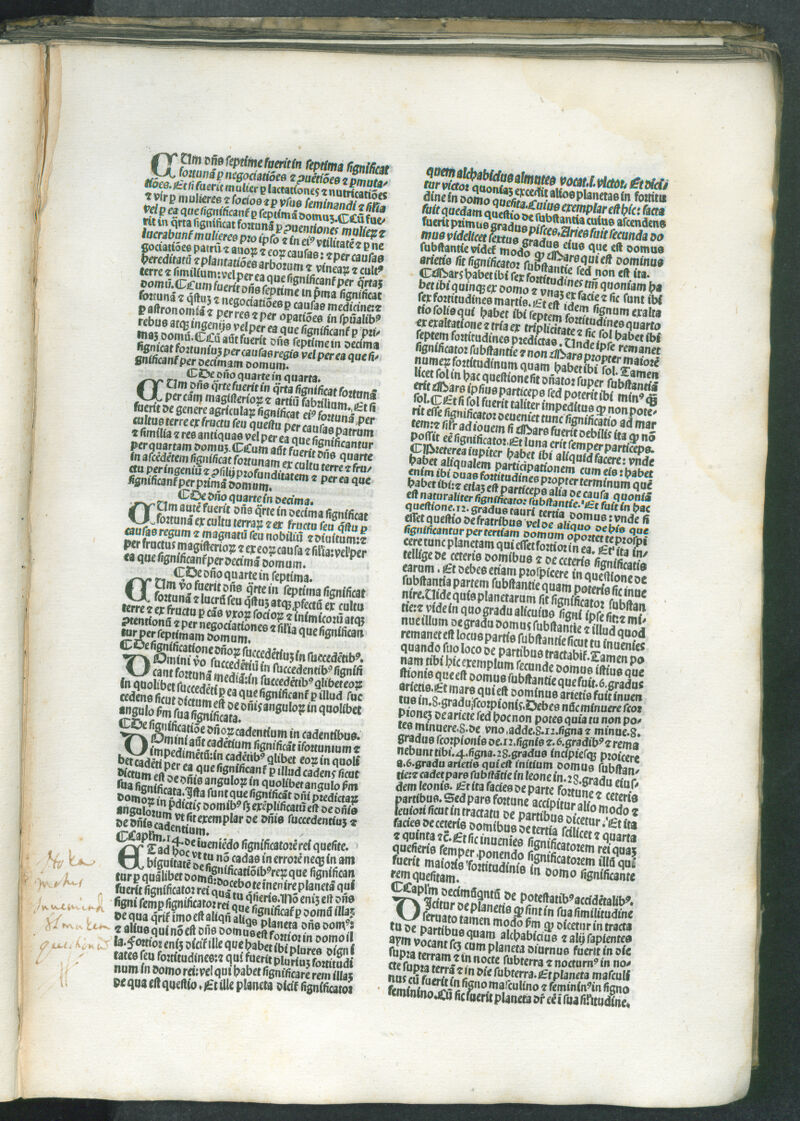 CUm dñs septime fuerit in septima significat
fortunã p negociatiões ⁊ ꝓuẽtiões ⁊ pmuta-
tiões. Et si fuerit mulier p lactationes ⁊ nutricatiões
⁊ vir p mulieres ⁊ socios ⁊ p vsus seminandi ⁊ sil̃ia
vel p ea que significant̃ p septimã domuꝫ. ⸿Cũ fue-
rit in q̃rta significat fortunã p ꝓuentiones mulieꝝ ⁊
lucrabunt̃ mulieres pro ipso ⁊ in eiꝰ vtilitatẽ ⁊ p ne
gociatiões patrũ ⁊ auoꝝ ⁊ eoꝝ causas: ⁊ per causas
hereditatũ ⁊ plantatiões arborum ⁊ vineaꝝ ⁊ cultꝰ
terre ⁊ similium: vel per ea que significant̃ per q̃rtaꝫ
domũ. ⸿Cum fuerit dñs septime in p̃ma significat
fortunã ⁊ q̃stuꝫ ⁊ negociatiões p causas medicine: ⁊
p astronomiã ⁊ per res ⁊ per opatiões in sp̃ualibꝰ
rebus atqꝫ ingenijs vel per ea que significant̃ p pri-
maꝫ domũ. ⸿Cũ aũt fuerit dñs septime in decima
significat fortuniuꝫ per causas regis vel per ea que si-
gnificant̃ per decimam domum.
⸿De dño quarte in quarta.
CUm dñs q̃rte fuerit in q̃rta significat fortunã
per cãm magisterioꝝ ⁊ artiũ fabrilium. Et si
fuerit de genere agricolaꝝ significat eiꝰ fortunã per
cultus terre ex fructu seu questu per causas patrum
⁊ similia ⁊ res antiquas vel per ea que significantur
per quartam domuꝫ. ⸿Cum aũt fuerit dñs quarte
in ascẽdẽtem significat fortunam ex cultu terre ⁊ fru-
ctu per ingeniũ ⁊ ꝯsilij profunditatem ⁊ per ea que
significant̃ per primã domum.
⸿De dño quarte in decima.
CUm autẽ fuerit dñs q̃rte in decima significat
fortunã ex cultu terraꝝ ⁊ ex fructu seu q̃stu p
causas regum ⁊ magnatũ seu nobiliũ ⁊ diuitum: ⁊
per fructus magisterioꝝ ⁊ ex eoꝝ causa ⁊ sil̃ia: vel per
ea que significant̃ per decimã domum.
⸿De dño quarte in septima.
CUm ṽo fuerit dñs q̃rte in septima significat
fortunã ⁊ lucrũ seu q̃stuꝫ atqꝫ ꝓfectũ ex cultu
terre ⁊ ex fructu p cãs vxoꝝ socioꝝ ⁊ inimicorũ atqꝫ
ꝯtentionũ ⁊ per negociationes ⁊ sil̃ia que significan
tur per septimam domum.
⸿De significatione dñoꝝ succedẽtiuꝫ in succedẽtibꝰ.
DOmini ṽo succedẽtiũ in succedentibꝰ signifi
cant fortunã mediã: in succedẽtibꝰ qlibet eoꝝ
in quolibet succedẽti p ea que significant̃ p illud suc
cedens sicut dictum est de dñis anguloꝝ in quolibet
angulo ẜm sua significata.
⸿De significatiõe dñoꝝ cadentium in cadentibus.
DOmini aũt cadẽtium significãt ĩfortunium ⁊
impedimẽtũ: in cadẽtibꝰ qlibet eoꝝ in quoli
bet cadẽti per ea que significant̃ p illud cadens sicut
dictum est de dñis anguloꝝ in quolibet angulo ẜm
sua significata. Ista sunt que significãt dñi predictaꝝ
domoꝝ in p̃dictis domibꝰ sꝫ exẽplificatũ est de dñis
angulorum vt sit exemplar de dñis succedentiuꝫ ⁊
de dñis cadentium.
⸿Capĺm .14. de iueniẽdo significatorẽ rei quesite.
ET ad hoc vt tu nõ cadas in errorẽ neqꝫ in am
biguitatẽ de significatiõibꝰ reꝝ que significan
tur p quãlibet domũ: docebo te inenire planetã qui
fuerit significator rei quã tu q̃sieris. Nõ eniꝫ est dñs
signi semp significator rei que significat̃ p domũ illaꝫ
de qua q̃rit̃ imo est aliqñ aliqs planeta dñs domꝰ:
⁊ alius qui nõ est dñs domus est fortior in domo il
la. Fortior eniꝫ dicit̃ ille que habet ibi plures digni
tates seu fortitudines: ⁊ qui fuerit pluriuꝫ fortitudi
num in domo rei: vel qui habet significare rem illaꝫ
de qua est questio. Et ille planeta dicit̃ significator
quem alchabicius almutes vocat .i. victor. Et dici-
tur victor quoniaꝫ excedit alios planetas in fortitu
dine in domo quesita. Cuius exemplar est hic: facta
fuit quedam questio de substantia cuius ascendens
fuerit primus gradus pisces. Aries fuit secunda do
mus videlicet sextus gradus eius que est domus
substantie videt̃ modo ꝙ Mars qui est dominus
arietis sit significator substantie sed non est ita.
⸿Mars habet ibi sex fortitudines tm̃ quoniam ha
bet ibi quinqꝫ ex domo ⁊ vnaꝫ ex facie ⁊ sic sunt ibi
sex fortitudines martis. Et est idem signum exalta
tio solis qui habet ibi septem fortitudines quarto
ex exaltatione ⁊ tria ex triplicitate ⁊ sic sol habet ibi
septem fortitudines predictas. Unde ipse remanet
significator substantie ⁊ non Mars propter maiorẽ
numeꝝ fortitudinum quam habet ibi sol. Tamen
licet sol in hac questione sit dñator super substantiã
erit Mars ipsius particeps sed poterit ibi minꝰ ꝙ̃
sol. ⸿Et si sol fuerit taliter impeditus ꝙ non pote-
rit esse significator deueniet tunc significatio ad mar
tem: ⁊ sil̃r ad iouem si Mars fuerit debilis ita ꝙ nõ
possit eẽ significator. Et luna erit semper particeps.
⸿Preterea iupiter habet ibi aliquid facere: vnde
habet aliqualem participationem cum eis: habet
enim ibi duas fortitudines propter terminum quẽ
habet ibi: ⁊ etiaꝫ est particeps alia de causa quoniã
est naturaliter significator substantie. Et fuit in hac
questione .12. gradus tauri tertia domus: vnde si
esset questio de fratribus vel de aliquo de his que
significantur per tertiam domum oportet te prospi
cere tunc planetam qui esset fortior in ea. Et ita in-
tellige de ceteris domibus ⁊ de ceteris significatis
earum. Et debes etiam prospicere in questione de
substantia partem substantie quam poteris sic inue
nire. Uide quis planetarum sit significator substan
tie: ⁊ vide in quo gradu alicuius signi ipse sit: ⁊ mi-
nue illum de gradu domus substantie ⁊ illud quod
remanet est locus partis substantie sicut tu inuenies
quando suo loco de partibus tractabit̃. Tamen po
nam tibi hic exemplum secunde domus istius que
stionis que est domus substantie que fuit .6. gradus
arietis. Et mars qui est dominus arietis fuit inuen
tus in .8. gradu scorpionis. Debes nũc minuere scor
pioneꝫ de ariete sed hoc non potes quia tu non po-
tes minuere .8. de vno. adde .8. 12. signa ⁊ minue .8.
gradus scorpionis de .12. signis ⁊ .6. gradibꝰ ⁊ rema
nebunt tibi .4. signa .28. gradus incipiesqꝫ proicere
a .6. gradu arietis qui est initium domus substan-
tie: ⁊ cadet pars substãtie in leone in .28. gradu eius-
dem leonis. Et ita facies de parte fortune ⁊ ceteris
partibus. Sed pars fortune accipitur alio modo ⁊
leuiori sicut in tractatu de partibus dicetur. Et ita
facies de ceteris domibus de tertia scilicet ⁊ quarta
⁊ quinta ⁊c̃. Et sic inuenies significatorem rei quaꝫ
quesieris semper ponendo significatorem illũ qui
fuerit maioris fortitudinis in domo significante
rem quesitam.
⸿Capĺm decimũqntũ de potestatibꝰ accidẽtalibꝰ.
DIcitur de planetis ꝙ sint in sua similitudine
seruato tamen modo ẜm ꝙ dicetur in tracta
tu de partibus quam alchabicius ⁊ alij sapientes
aym vocant scꝫ cum planeta diurnus fuerit in die
supra terram ⁊ in nocte subterra ⁊ nocturnꝰ in no-
cte supra terrã ⁊ in die subterra. Et planeta masculi
nus cũ fuerit in signo masculino ⁊ femininꝰ in signo
feminino. Cũ sic fuerit planeta dr̃ eẽ ĩ sua sil̃itudine.
Nota
modus
Inueniendi
Almutem
questionis